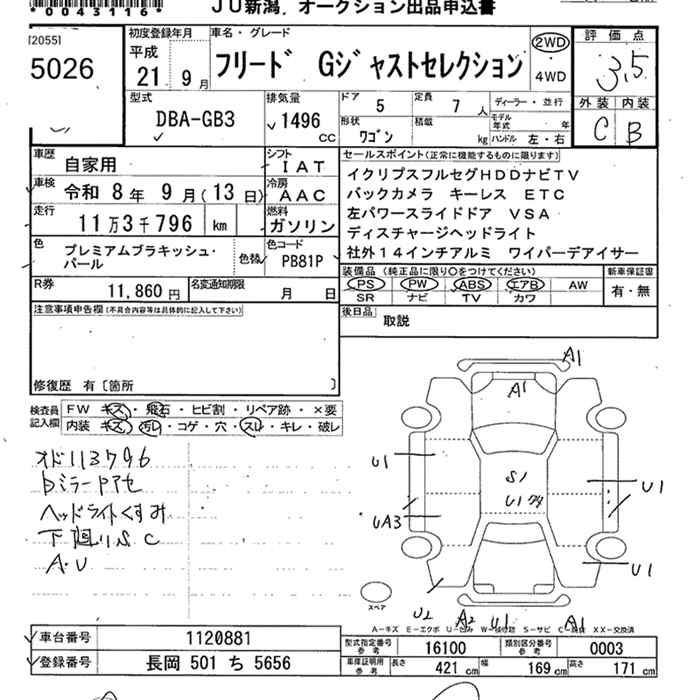 *0043116*
JU新潟 オークション出品申込書
[2055]
5026
初度登録年月
平成
21 9月
車名・グレード
フリード Gジャストセレクション
2WD
4WD
評価点
3.5
外装 内装
C B
型式
DBA-GB3
排気量
1496
CC
ドア 5
定員 7 人
ディーラー・並行
形状 ワゴン
積載 kg
モデル年式 年
ハンドル 左・右
車歴 自家用
シフト IAT
車検 令和 8年 9月(13日)
冷房 AAC
走行 11万3千796 km
燃料 ガソリン
色 プレミアムブラキッシュ・パール
色替
色コード PB81P
R券 11,860円
名変通知期限 月 日
セールスポイント(正常に機能するものに限ります)
イクリプスフルセグHDDナビTV
バックカメラ キーレス ETC
左パワースライドドア VSA
ディスチャージヘッドライト
社外14インチアルミ ワイパーデアイサー
装備品(純正品に限り○をつけてください)
PS PW ABS エアB AW
SR ナビ TV カワ
新車保証書
有・無
後日品 取説
注意事項申告欄(不具合内容等は具体的に記入して下さい)
修復歴 有〔箇所 〕
検査員記入欄
FW キズ・飛石・ヒビ割・リペア跡・×要
内装 キズ・汚レ・コゲ・穴・スレ・キレ・破レ
オド113796
ヘッドライトくすみ
下廻りSC
A・U
A1
A1
U1
S1
U1
U1
UA3
U1
スペア
U2 A2 U1 A1
A-キズ E-エクボ U-凹み S-サビ XX-交換済
車台番号 1120881
登録番号 長岡 501 ち 5656
型式指定番号 参考 16100
類別区分番号 参考 0003
車庫証明用 参考 長さ 421 cm 幅 169 cm 高さ 171 cm